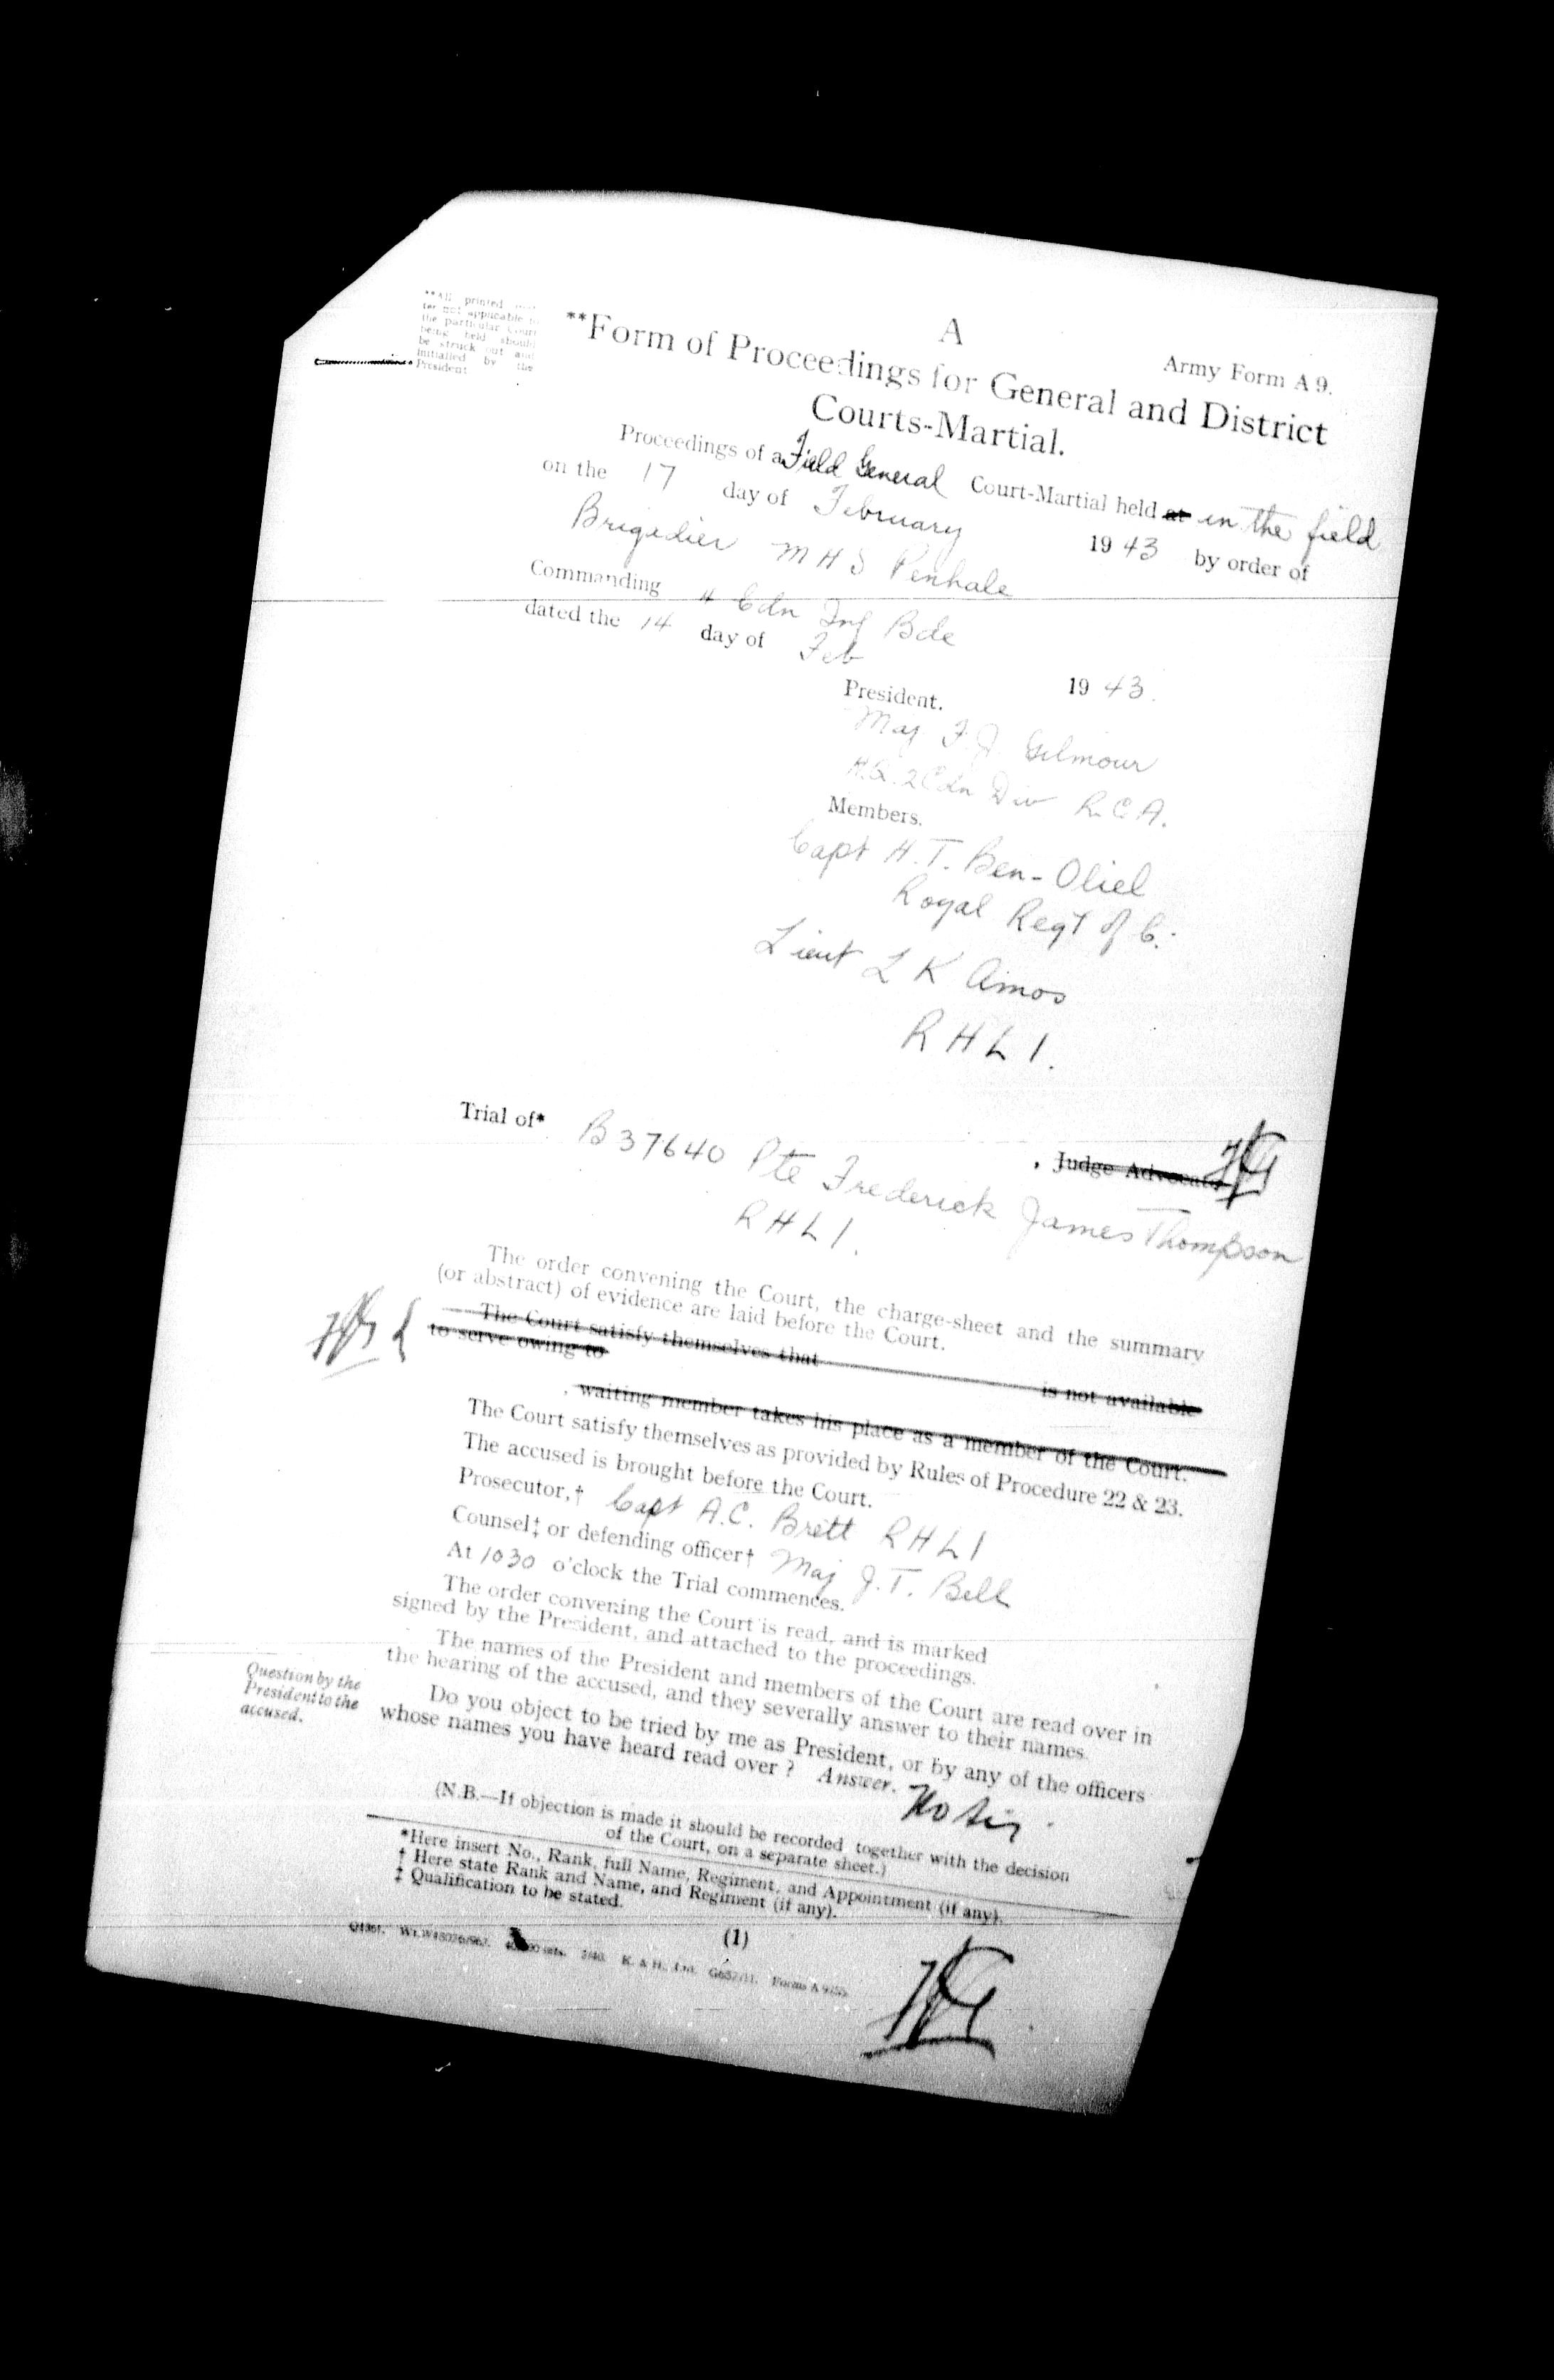 A
Army Form A 9.
**All printed
ter not applicable to
the particular Court
being held should
be struck out and
initialled by the
President
**Form of Proceedings for General and District
Courts-Martial.
Proceedings of a Field General Court-Martial held at in the field
on the 17 day of February 1943 by order of
Brigadier M H S Penhale
Commanding 4 Cdn Inf Bde
dated the 14 day of Feb 1943.
President.
Maj F. J Gilmour
H.Q. 2 Cdn Div R.C.A.
Members.
Capt H. T. Ben-Oliel
Royal Regt of C.
Lieut L K Amos
R H L I.
, Judge Advocate
Trial of* B37640 Pte Frederick James Thompson
R H L I.
The order convening the Court, the charge-sheet and the summary
(or abstract) of evidence are laid before the Court.
The Court satisfy themselves that is not available
to serve owing to
, waiting member takes his place as a member of the Court.
The Court satisfy themselves as provided by Rules of Procedure 22 & 23.
The accused is brought before the Court.
Prosecutor,† Capt A.C. Brett R H L I
Counsel‡ or defending officer† Maj J. T. Bell
At 1030 o'clock the Trial commences.
The order convening the Court is read, and is marked
signed by the President, and attached to the proceedings.
The names of the President and members of the Court are read over in
the hearing of the accused, and they severally answer to their names.
Question by the
President to the
accused.
Do you object to be tried by me as President, or by any of the officers
whose names you have heard read over ? Answer. No Sir.
(N.B.—If objection is made it should be recorded together with the decision
of the Court, on a separate sheet.)
*Here insert No., Rank, full Name, Regiment, and Appointment (if any).
† Here state Rank and Name, and Regiment (if any).
‡ Qualification to be stated.
(1)
2/40. K. & H., Ltd. Forms A 9/25.